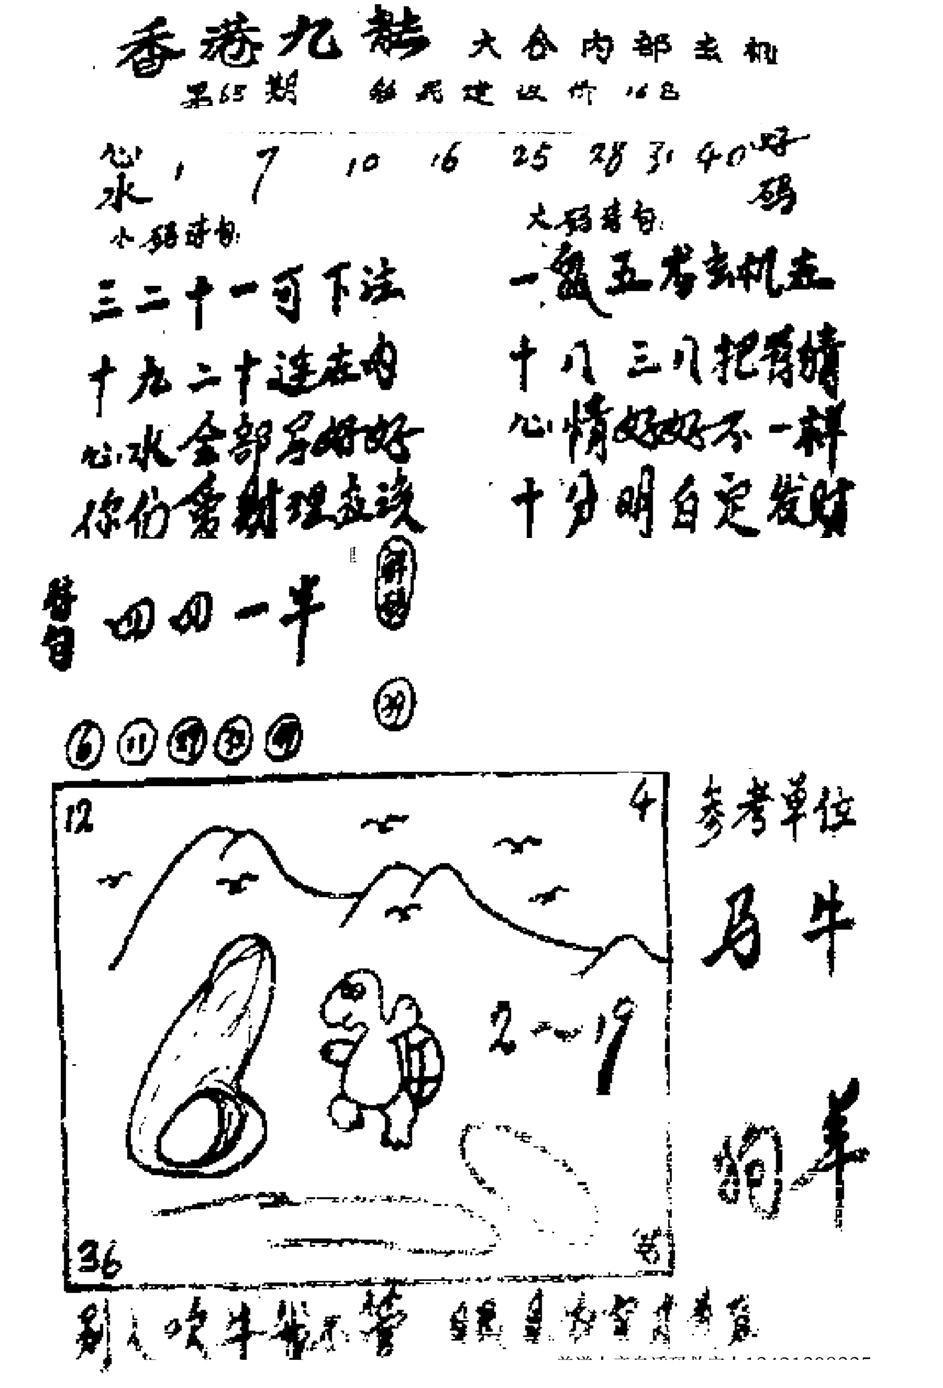 香港九龍 六合内部玄机
第65期 彩民建议价16邑
心水 1 7 10 16 25 28 31 40 好码
小码诗句:
大码诗句:
三二十一可下注
十九二十连在内
心水全部写好好
你们发财理应该
一五考玄机在
十八三八把有情
心情好好不一样
十分明白定发财
诗句
四四一半
解码
39
6 11
12
4
参考单位
马 牛
2~19
狗 羊
36
别人吹牛我不管